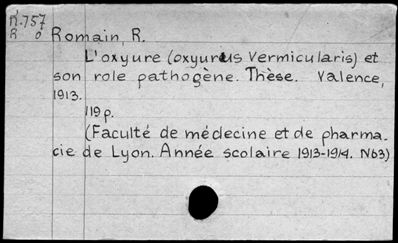 R.757
R o
Romain, R.
L'oxyure (oxyurus Vermicularis) et
son role pathogène. Thèse. Valence,
1913.
119 p.
(Faculté de médecine et de pharma-
cie de Lyon. Année scolaire 1913-1914. N63)